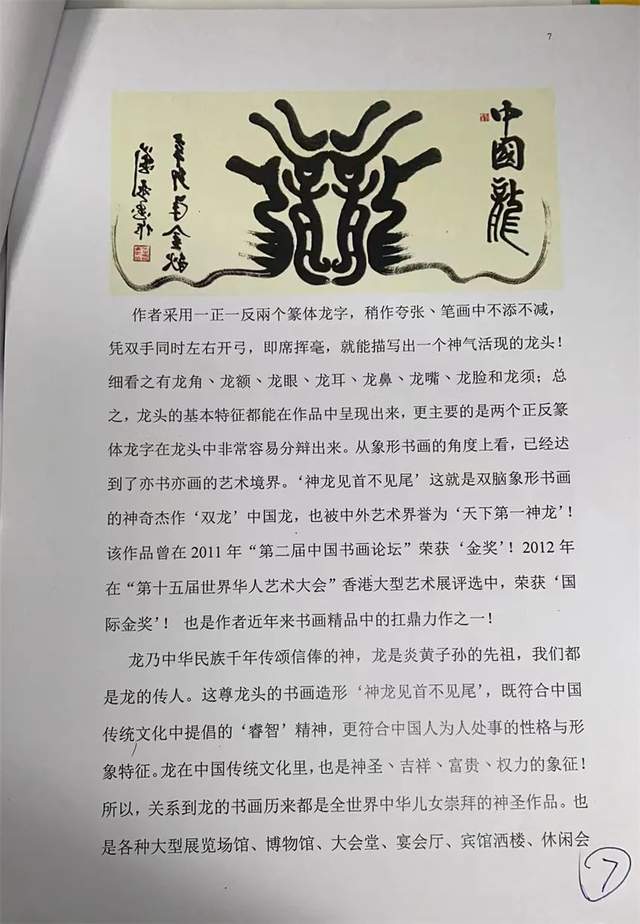 7
中國龍
作者采用一正一反兩个篆体龙字，稍作夸张、笔画中不添不减，
凭双手同时左右开弓，即席挥毫，就能描写出一个神气活现的龙头！
细看之有龙角、龙额、龙眼、龙耳、龙鼻、龙嘴、龙脸和龙须；总
之，龙头的基本特征都能在作品中呈现出来，更主要的是两个正反篆
体龙字在龙头中非常容易分辩出来。从象形书画的角度上看，已经达
到了亦书亦画的艺术境界。‘神龙见首不见尾’这就是双脑象形书画
的神奇杰作‘双龙’中国龙，也被中外艺术界誉为‘天下第一神龙’！
该作品曾在2011年“第二届中国书画论坛”荣获‘金奖’！2012年
在“第十五届世界华人艺术大会”香港大型艺术展评选中，荣获‘国
际金奖’！ 也是作者近年来书画精品中的扛鼎力作之一！
龙乃中华民族千年传颂信俸的神，龙是炎黄子孙的先祖，我们都
是龙的传人。这尊龙头的书画造形‘神龙见首不见尾’，既符合中国
传统文化中提倡的‘睿智’精神，更符合中国人为人处事的性格与形
象特征。龙在中国传统文化里，也是神圣、吉祥、富贵、权力的象征！
所以，关系到龙的书画历来都是全世界中华儿女崇拜的神圣作品。也
是各种大型展览场馆、博物馆、大会堂、宴会厅、宾馆洒楼、休闲会
7